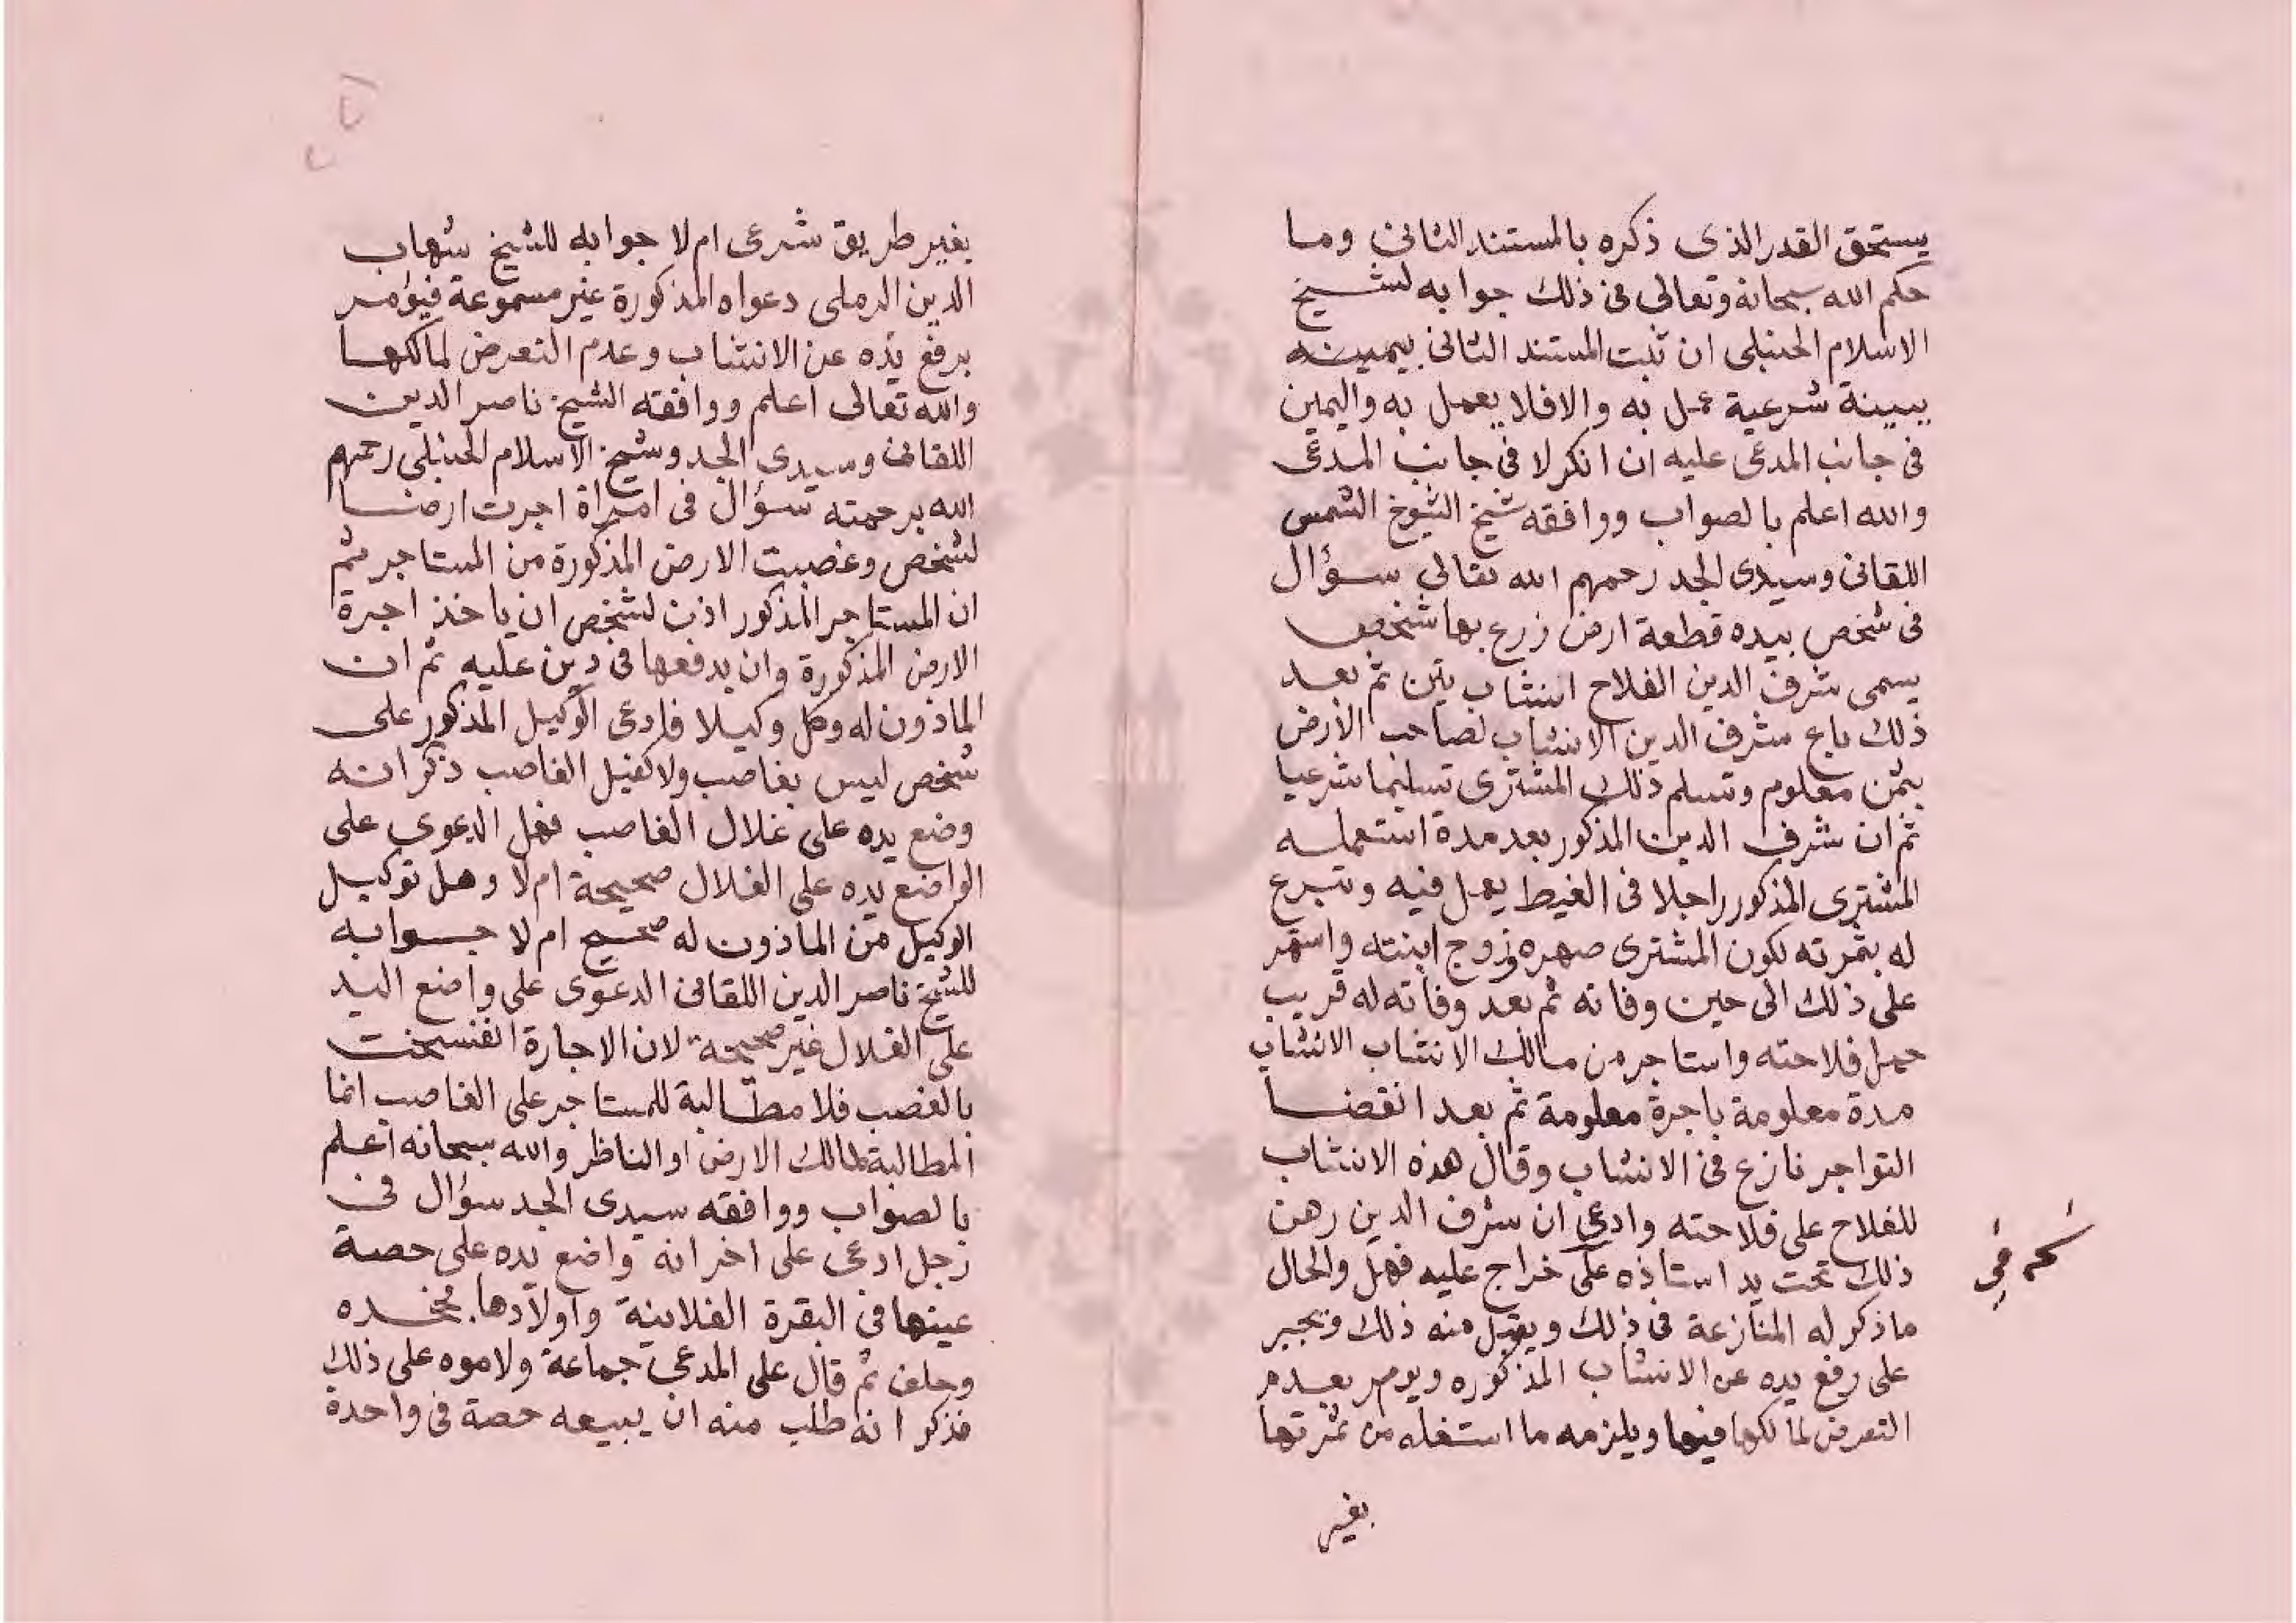 يستحق القدر الذى ذكره بالمستند الثانى وما
حكم الله سبحانه وتعالى فى ذلك جوابه لشيخ
الاسلام الحنبلى ان ثبت المستند الثانى بيمينه
ببينة شرعية عمل به والا فلا يعمل به واليمين
فى جانب المدعى عليه ان انكر لا فى جانب المدعى
والله اعلم بالصواب ووافقه شيخ الشيوخ الشمس
اللقانى وسيدى الجد رحمهم الله تعالى سؤال
فى شخص بيده قطعة ارض زرع بها شخص
يسمى شرف الدين الفلاح انشاب تين ثم بعد
ذلك باع شرف الدين الانشاب لصاحب الأرض
بثمن معلوم وتسلم ذلك المشترى تسليما شرعيا
ثم ان شرف الدين المذكور بعد مدة استعمله
المشترى المذكور راجلا فى الغيط يعمل فيه وتبرع
له بثمرته لكون المشترى صهره زوج ابنته واستمر
على ذلك الى حين وفاته ثم بعد وفاته له قريب
حمل فلاحته واستاجر من مالك الانشاب الانشاب
مدة معلومة باجرة معلومة ثم بعد انقضا
التواجر نازع فى الانشاب وقال هذه الانشاب
للفلاح على فلاحته وادعى ان شرف الدين رهن
ذلك تحت يد استاذه على خراج عليه فهل والحال
ما ذكر له المنازعة فى ذلك ويقبل منه ذلك ويجبر
على رفع يده عن الانشاب المذكوره ويومر بعدم
التعرض لمالكها فيها ويلزمه ما استغله من ثمرتها
بغير
بغير طريق شرعى ام لا جوابه للشيخ شهاب
الدين الرملى دعواه المذكورة غير مسموعة فيؤمر
برفع يده عن الانشاب وعدم التعرض لمالكها
والله تعالى اعلم ووافقه الشيخ ناصر الدين
اللقانى وسيدى الجد وشيخ الاسلام الحنبلى رحمهم
الله برحمته سؤال فى امراة اجرت ارضا
لشخص وغصبت الارض المذكورة من المستاجر ثم
ان المستاجر المذكور اذن لشخص ان ياخذ اجرة
الارض المذكورة وان يدفعها فى دين عليه ثم ان
الماذون له وكل وكيلا فادعى الوكيل المذكور على
شخص ليس بغاصب ولا كفيل الغاصب ذكر انه
وضع يده على غلال الغاصب فهل الدعوى على
الواضع يده على الغلال صحيحة ام لا وهل توكيل
الوكيل من الماذون له صحيح ام لا جوابه
للشيخ ناصر الدين اللقانى الدعوى على واضع اليد
على الغلال غير صحيحة لان الاجارة انفسخت
بالغصب فلا مطالبة للمستاجر على الغاصب انما
المطالبة لمالك الارض او الناظر والله سبحانه اعلم
بالصواب ووافقه سيدى الجد سؤال فى
رجل ادعى على اخر انه واضع يده على حصة
عينها فى البقرة الفلانية واولادها فجحده
وحلف ثم قال على المدعى جماعة ولاموه على ذلك
فذكر انه طلب منه ان يبيعه حصة فى واحدة